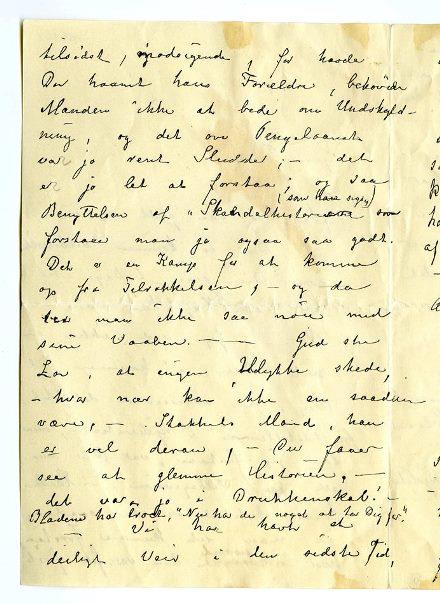 tilsidst, nødvigende, for havde
De haant hans Forældre, behøvede
Manden ikke at bede om Undskyld-
ning, og det om Pengelaanet
var jo rent Sludder; - det
er jo let at forstaa; og saa
(som han siger)
Benyttelsen af "Skandalhistorierne som
forstaaer man jo ogsaa saa godt.
Det er en Kamp for at komme
op fra Tilsækkelsen, - og da
ler man ikke saa nøie med
sine Vaaben. - - Gud ske
Lov, at ingen Ulykke skede,
- hvor nær kan ikke en saadan
være, - Stakkels Mand, han
er vel deran, - Du faaer
see at glemme Historien, -
det var jo i Drukkenskab! -
Bladene har troet, "Nu har de noget at ta' Dig for".
- Vi har havt et
deiligt Veir i den sidste Tid,